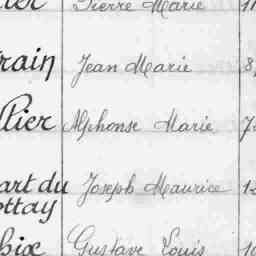 Pierre Marie
rain Jean Marie
llier Alphonse Marie
art du Joseph Maurice
ottay
hix Gustave Louis